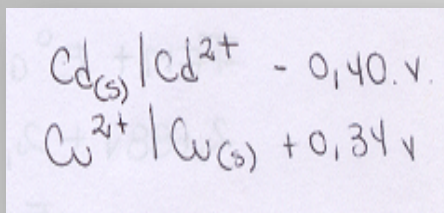 Cd(s) | Cd²⁺ - 0,40. v.
Cu²⁺ | Cu(s) + 0,34 v